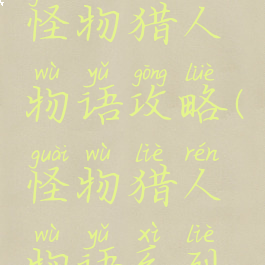 怪物猎人
wù yǔ gōng lüè
物语攻略(
guài wù liè rén
怪物猎人
wù yǔ xì liè
物语系列